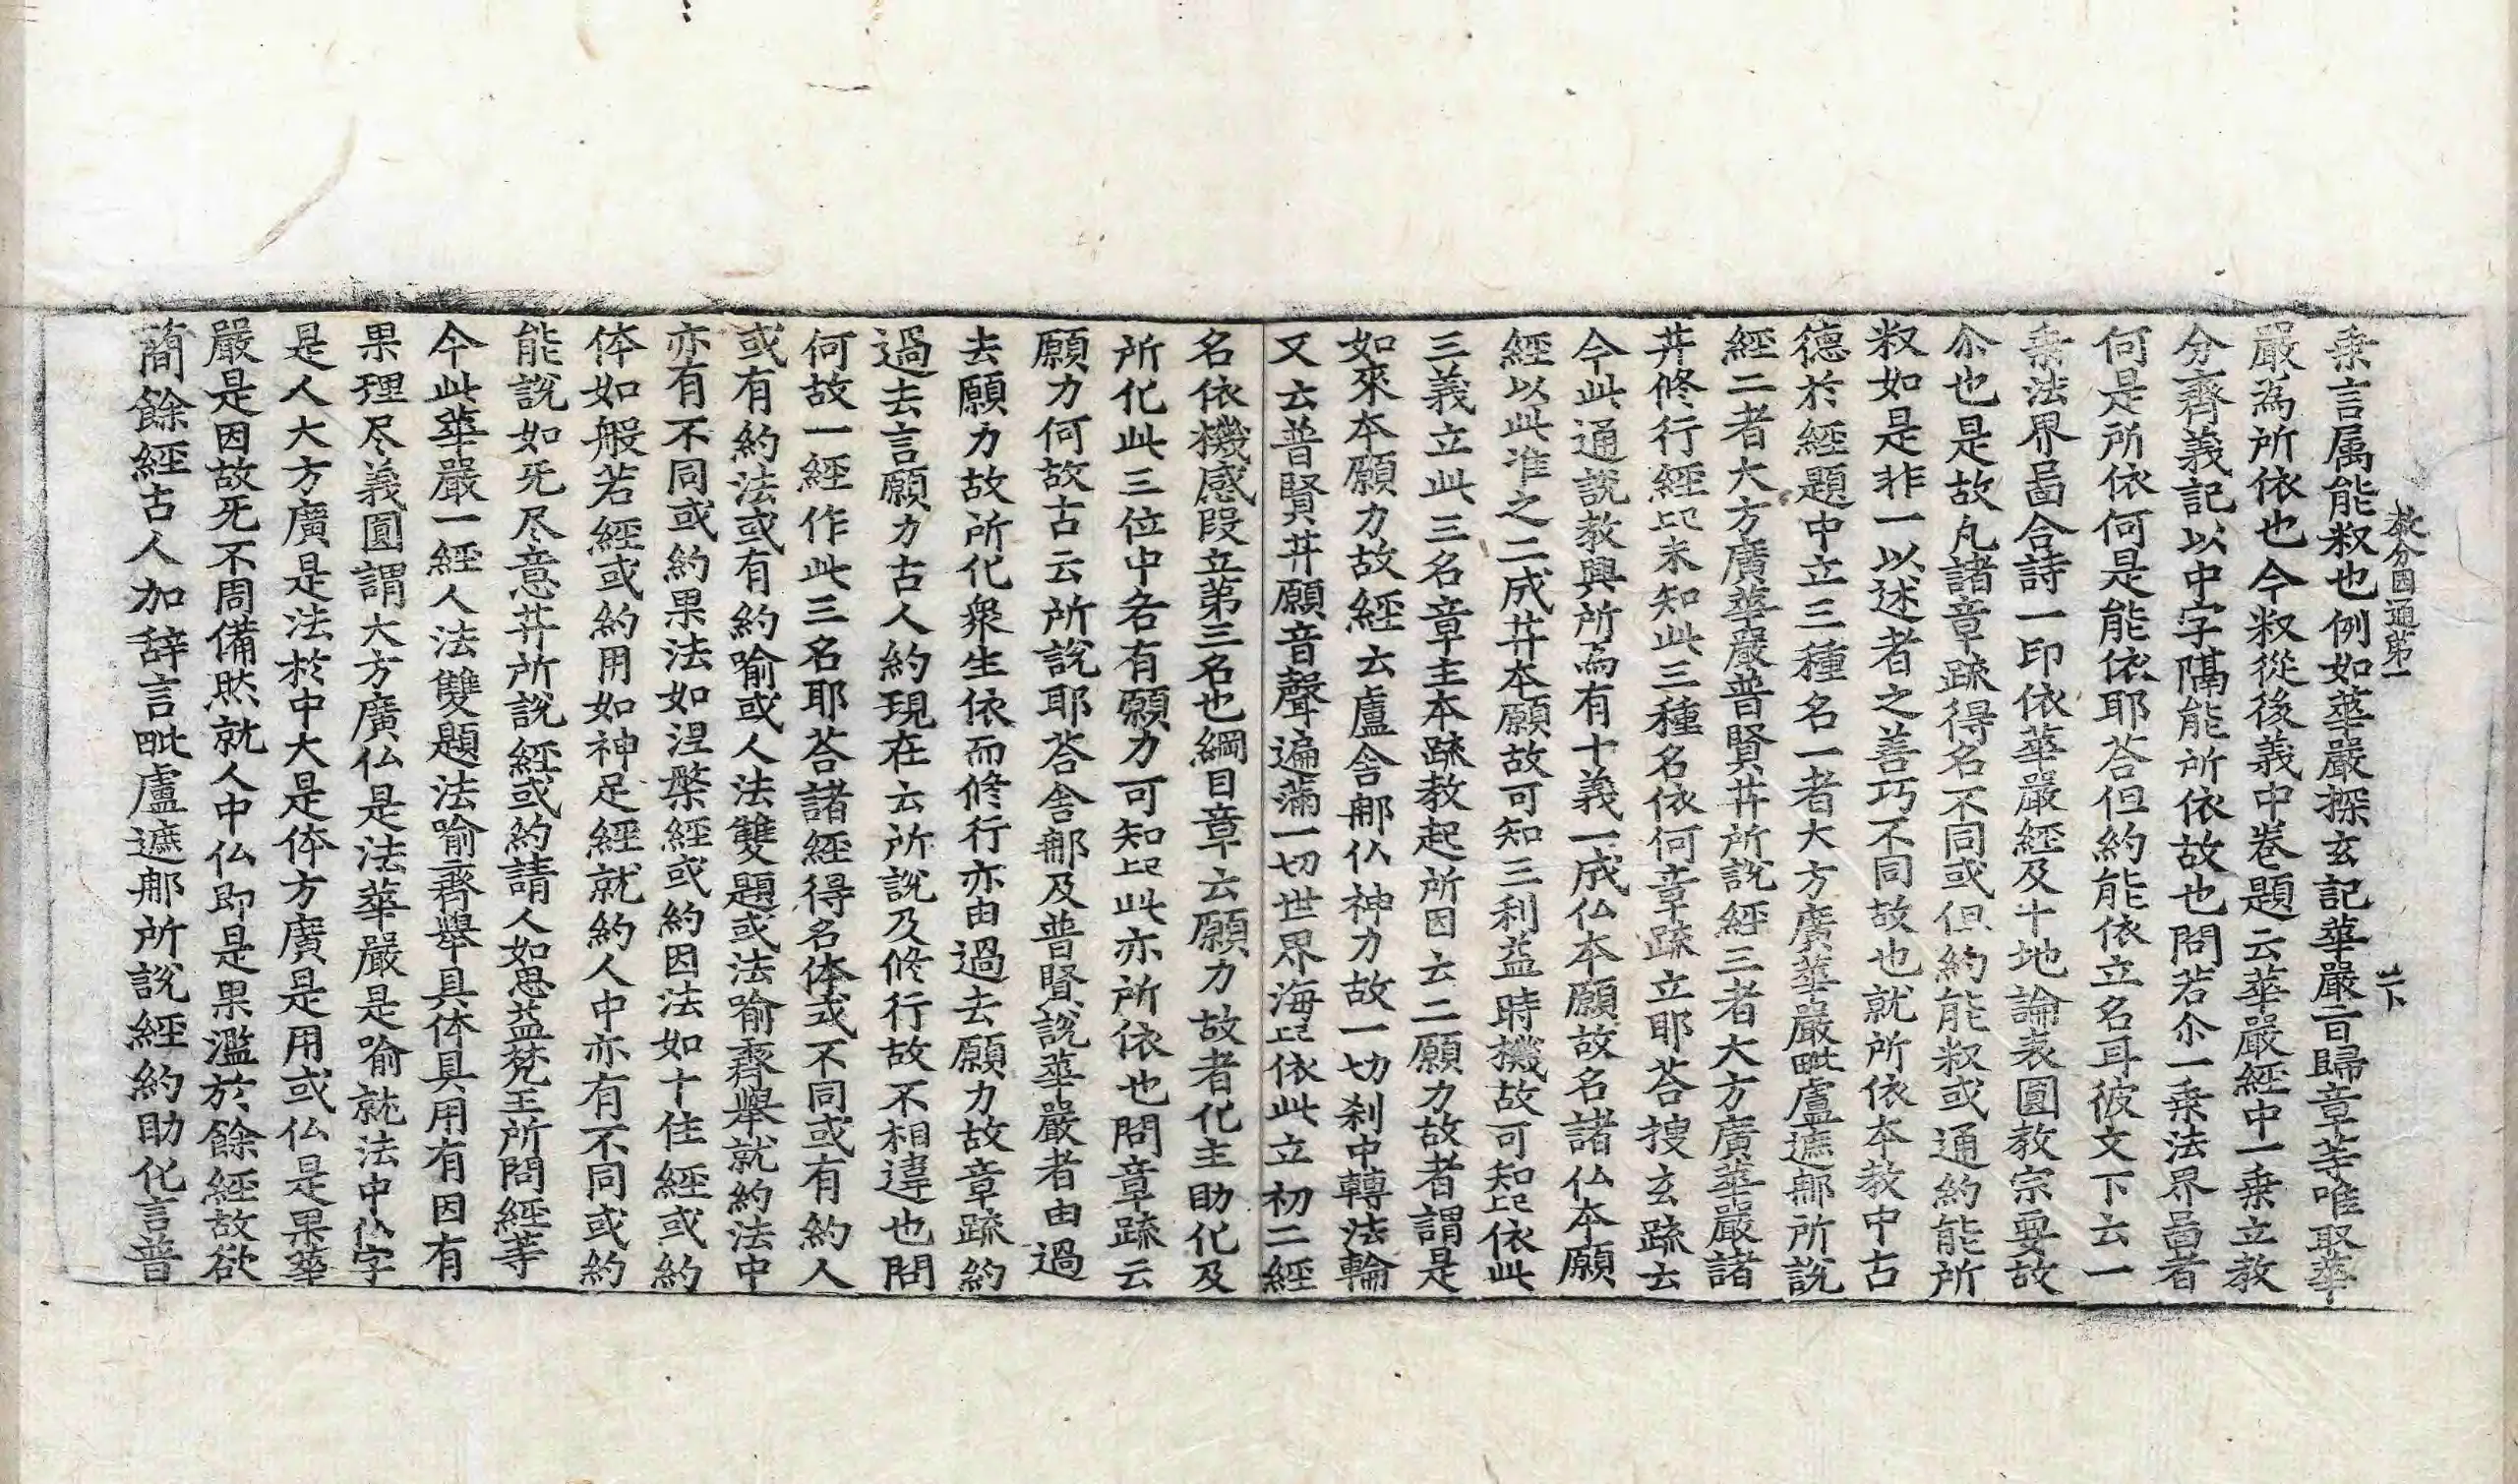 教分圓通第一 二下
乗言属能𣏾也例如華嚴探玄記華嚴旨歸章等唯取華
嚴為所依也今𣏾從後義中卷題云華嚴經中一乗立教
分齊義記以中字隔能所依故也問若尒一乗法界啚者
何是所依何是能依耶荅但約能依立名耳彼文下云一
乗法界啚合詩一印依華嚴經及十地論表圓教宗要故
尒也是故凢諸章䟽得名不同或但約能𣏾或通約能所
𣏾如是非一以述者之善巧不同故也就所依本教中古
德於經題中立三種名一者大方廣華嚴毗盧遮那所說
經二者大方廣華嚴普賢䒑所說經三者大方廣華嚴諸
䒑修行經也未知此三種名依何章䟽立耶荅搜玄䟽云
今此通說教興所為有十義一成仏本願故名諸仏本願
經以此准之二成䒑本願故可知三利益時機故可知也依此
三義立此三名章主本䟽教起所因云二願力故者謂是
如來本願力故經云盧舍那仏神力故一切刹中轉法輪
又云普賢䒑願音聲遍滿一切世界海也依此立初二經
名依機感段立第三名也綱目章云願力故者化主助化及
所化此三位中各有願力可知也此亦所依也問章䟽云
願力何故古云所說耶荅舍那及普賢說華嚴者由過
去願力故所化衆生依而修行亦由過去願力故章䟽約
過去言願力古人約現在云所說及修行故不相違也問
何故一經作此三名耶荅諸經得名体或不同或有約人
或有約法或有約喻或人法雙題或法喻齊舉就約法中
亦有不同或約果法如涅槃經或約因法如十住經或約
体如般若經或約用如神足經就約人中亦有不同或約
能說如旡尽意䒑所說經或約請人如思益梵王所問經等
今此華嚴一經人法雙題法喻齊舉具体具用有因有
果理尽義圓謂大方廣仏是法華嚴是喻就法中仏字
是人大方廣是法於中大是体方廣是用或仏是果華
嚴是因故旡不周備然就人中仏即是果濫於餘經故欲
蕳餘經古人加辞言毗盧遮那所說經約助化言普